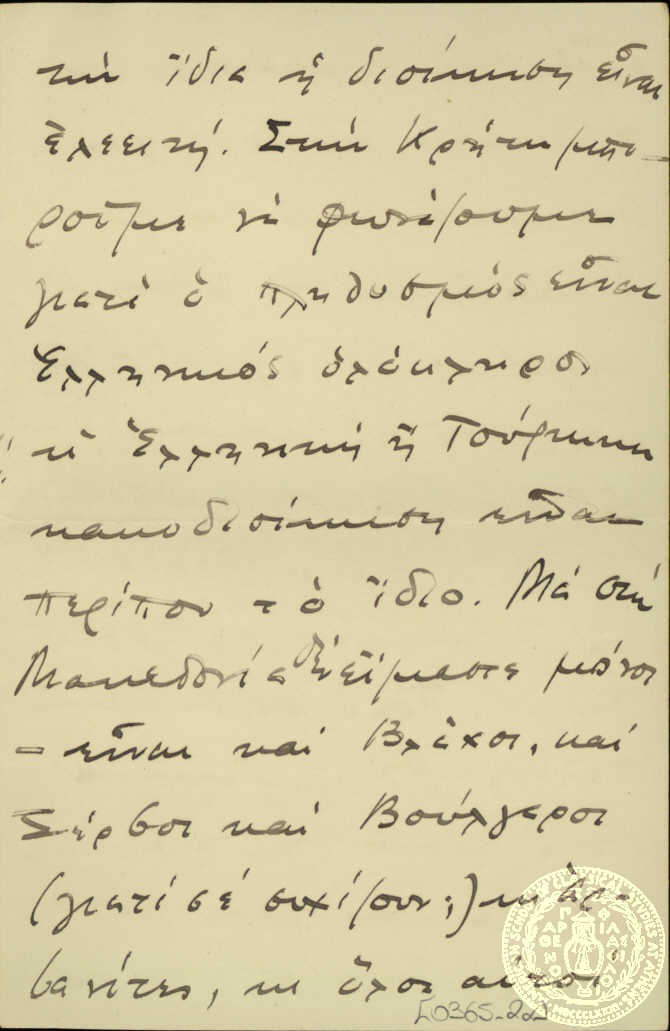 τὴν ἴδια ἡ διοίκηση εἶναι
ἐλεεινή. Στὴν Κρήτη μπο-
ροῦμε νὰ φωνάζουμε
γιατὶ ὁ πληθυσμὸς εἶναι
Ἑλληνικός ὁλόκληρος
κι Ἑλληνική ἢ Τούρκικη
κακοδιοίκηση εἶναι
περίπου τὸ ἴδιο. Μὰ στὴ
Μακεδονία δὲν εἴμαστε μόνοι
– εἶναι καὶ Βλάχοι, καὶ
Σέρβοι καὶ Βούλγαροι
(γιατί σέ συχίζουν;) κι Ἀρ-
βανίτες, κι ὅλοι αὐτοὶ
[0365-22]